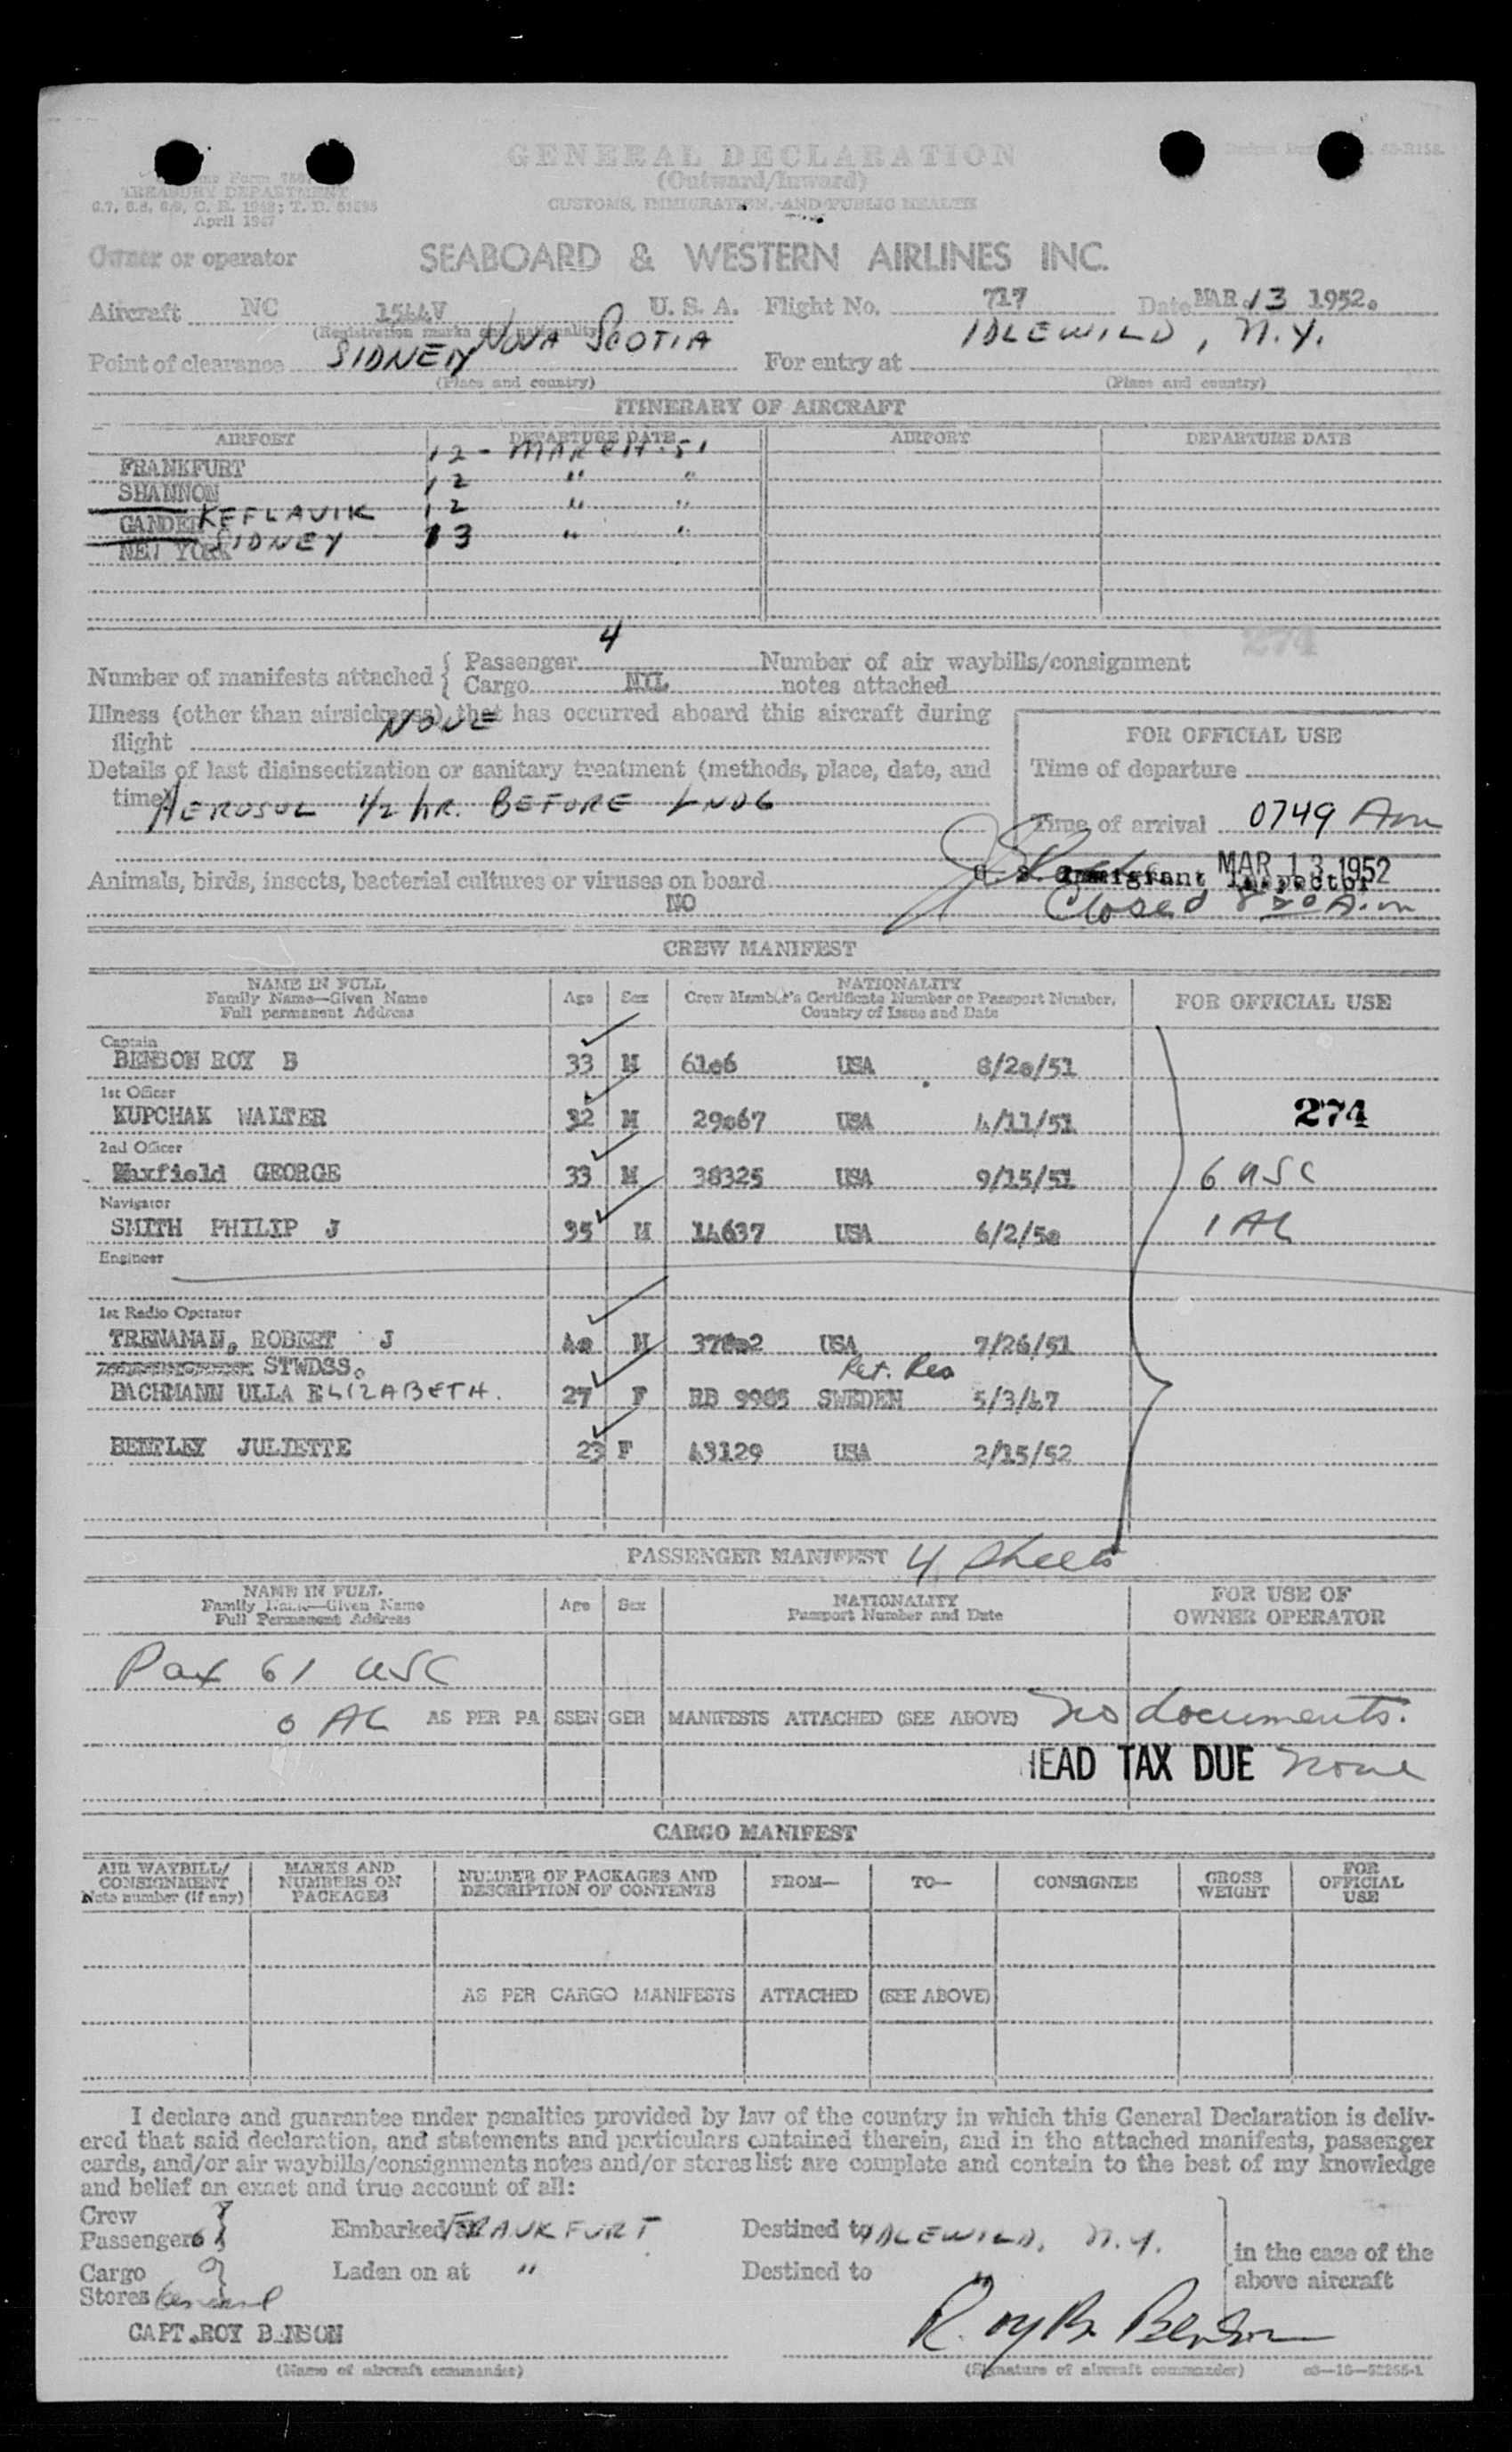 GENERAL DECLARATION
(Outward/Inward)
CUSTOMS, IMMIGRATION, AND PUBLIC HEALTH
TREASURY DEPARTMENT
April 1947
Owner or operator SEABOARD & WESTERN AIRLINES INC.
Aircraft NC 1544V U. S. A. Flight No. 717 Date MAR. 13 1952.
(Registration marks and nationality)
Point of clearance SIDNEY NOVA SCOTIA For entry at IDLEWILD, N.Y.
(Place and country) (Place and country)
ITINERARY OF AIRCRAFT
AIRPORT DEPARTURE DATE AIRPORT DEPARTURE DATE
FRANKFURT 12 - MARCH - 51
SHANNON 12 " "
GANDER KEFLAVIK 12 " "
NEW YORK SIDNEY 13 " "
274
Number of manifests attached { Passenger 4 Number of air waybills/consignment
Cargo NIL notes attached
Illness (other than airsickness) that has occurred aboard this aircraft during
flight NONE
Details of last disinsectization or sanitary treatment (methods, place, date, and
time) AEROSOL 1/2 hR. BEFORE LNDG
FOR OFFICIAL USE
Time of departure
Time of arrival 0749 Am
MAR 13 1952
U. S. Immigrant Inspector
Closed 8 20 A.m
Animals, birds, insects, bacterial cultures or viruses on board
NO
CREW MANIFEST
NAME IN FULL
Family Name—Given Name
Full permanent Address
Age Sex
NATIONALITY
Crew Member's Certificate Number or Passport Number,
Country of Issue and Date
FOR OFFICIAL USE
Captain
BENSON ROY B 33 M 61o6 USA 8/2o/51
1st Officer
KUPCHAK WALTER 32 M 29o67 USA 4/11/51
274
2nd Officer
Maxfield GEORGE 33 M 38325 USA 9/15/51
6 USC
Navigator
SMITH PHILIP J 35 M 14637 USA 6/2/5o
1 AL
Engineer
1st Radio Operator
TRENAMAN, ROBERT J 4o M USA 7/26/51
STWDSS.
Ret. Res
BACHMANN ULLA ELIZABETH. 27 F RB 9985 SWEDEN 5/3/47
BENTLEY JULIETTE 23 F 43129 USA 2/15/52
PASSENGER MANIFEST 4 sheets
NAME IN FULL
Family Name—Given Name
Full Permanent Address
Age Sex
NATIONALITY
Passport Number and Date
FOR USE OF
OWNER OPERATOR
Pax 61 USC
0 AL AS PER PASSENGER MANIFESTS ATTACHED (SEE ABOVE) No documents.
HEAD TAX DUE none
CARGO MANIFEST
AIR WAYBILL/
CONSIGNMENT
Note number (if any)
MARKS AND
NUMBERS ON
PACKAGES
NUMBER OF PACKAGES AND
DESCRIPTION OF CONTENTS
FROM— TO— CONSIGNEE
GROSS
WEIGHT
FOR
OFFICIAL
USE
AS PER CARGO MANIFESTS ATTACHED (SEE ABOVE)
I declare and guarantee under penalties provided by law of the country in which this General Declaration is deliv-
ered that said declaration, and statements and particulars contained therein, and in the attached manifests, passenger
cards, and/or air waybills/consignments notes and/or stores list are complete and contain to the best of my knowledge
and belief an exact and true account of all:
Crew
Passengers } Embarked at FRANKFURT Destined to IDLEWILD, N.Y.
in the case of the
above aircraft
Cargo
Stores General } Laden on at " Destined to "
CAPT. ROY BENSON Roy B. Benson
(Name of aircraft commander) (Signature of aircraft commander)